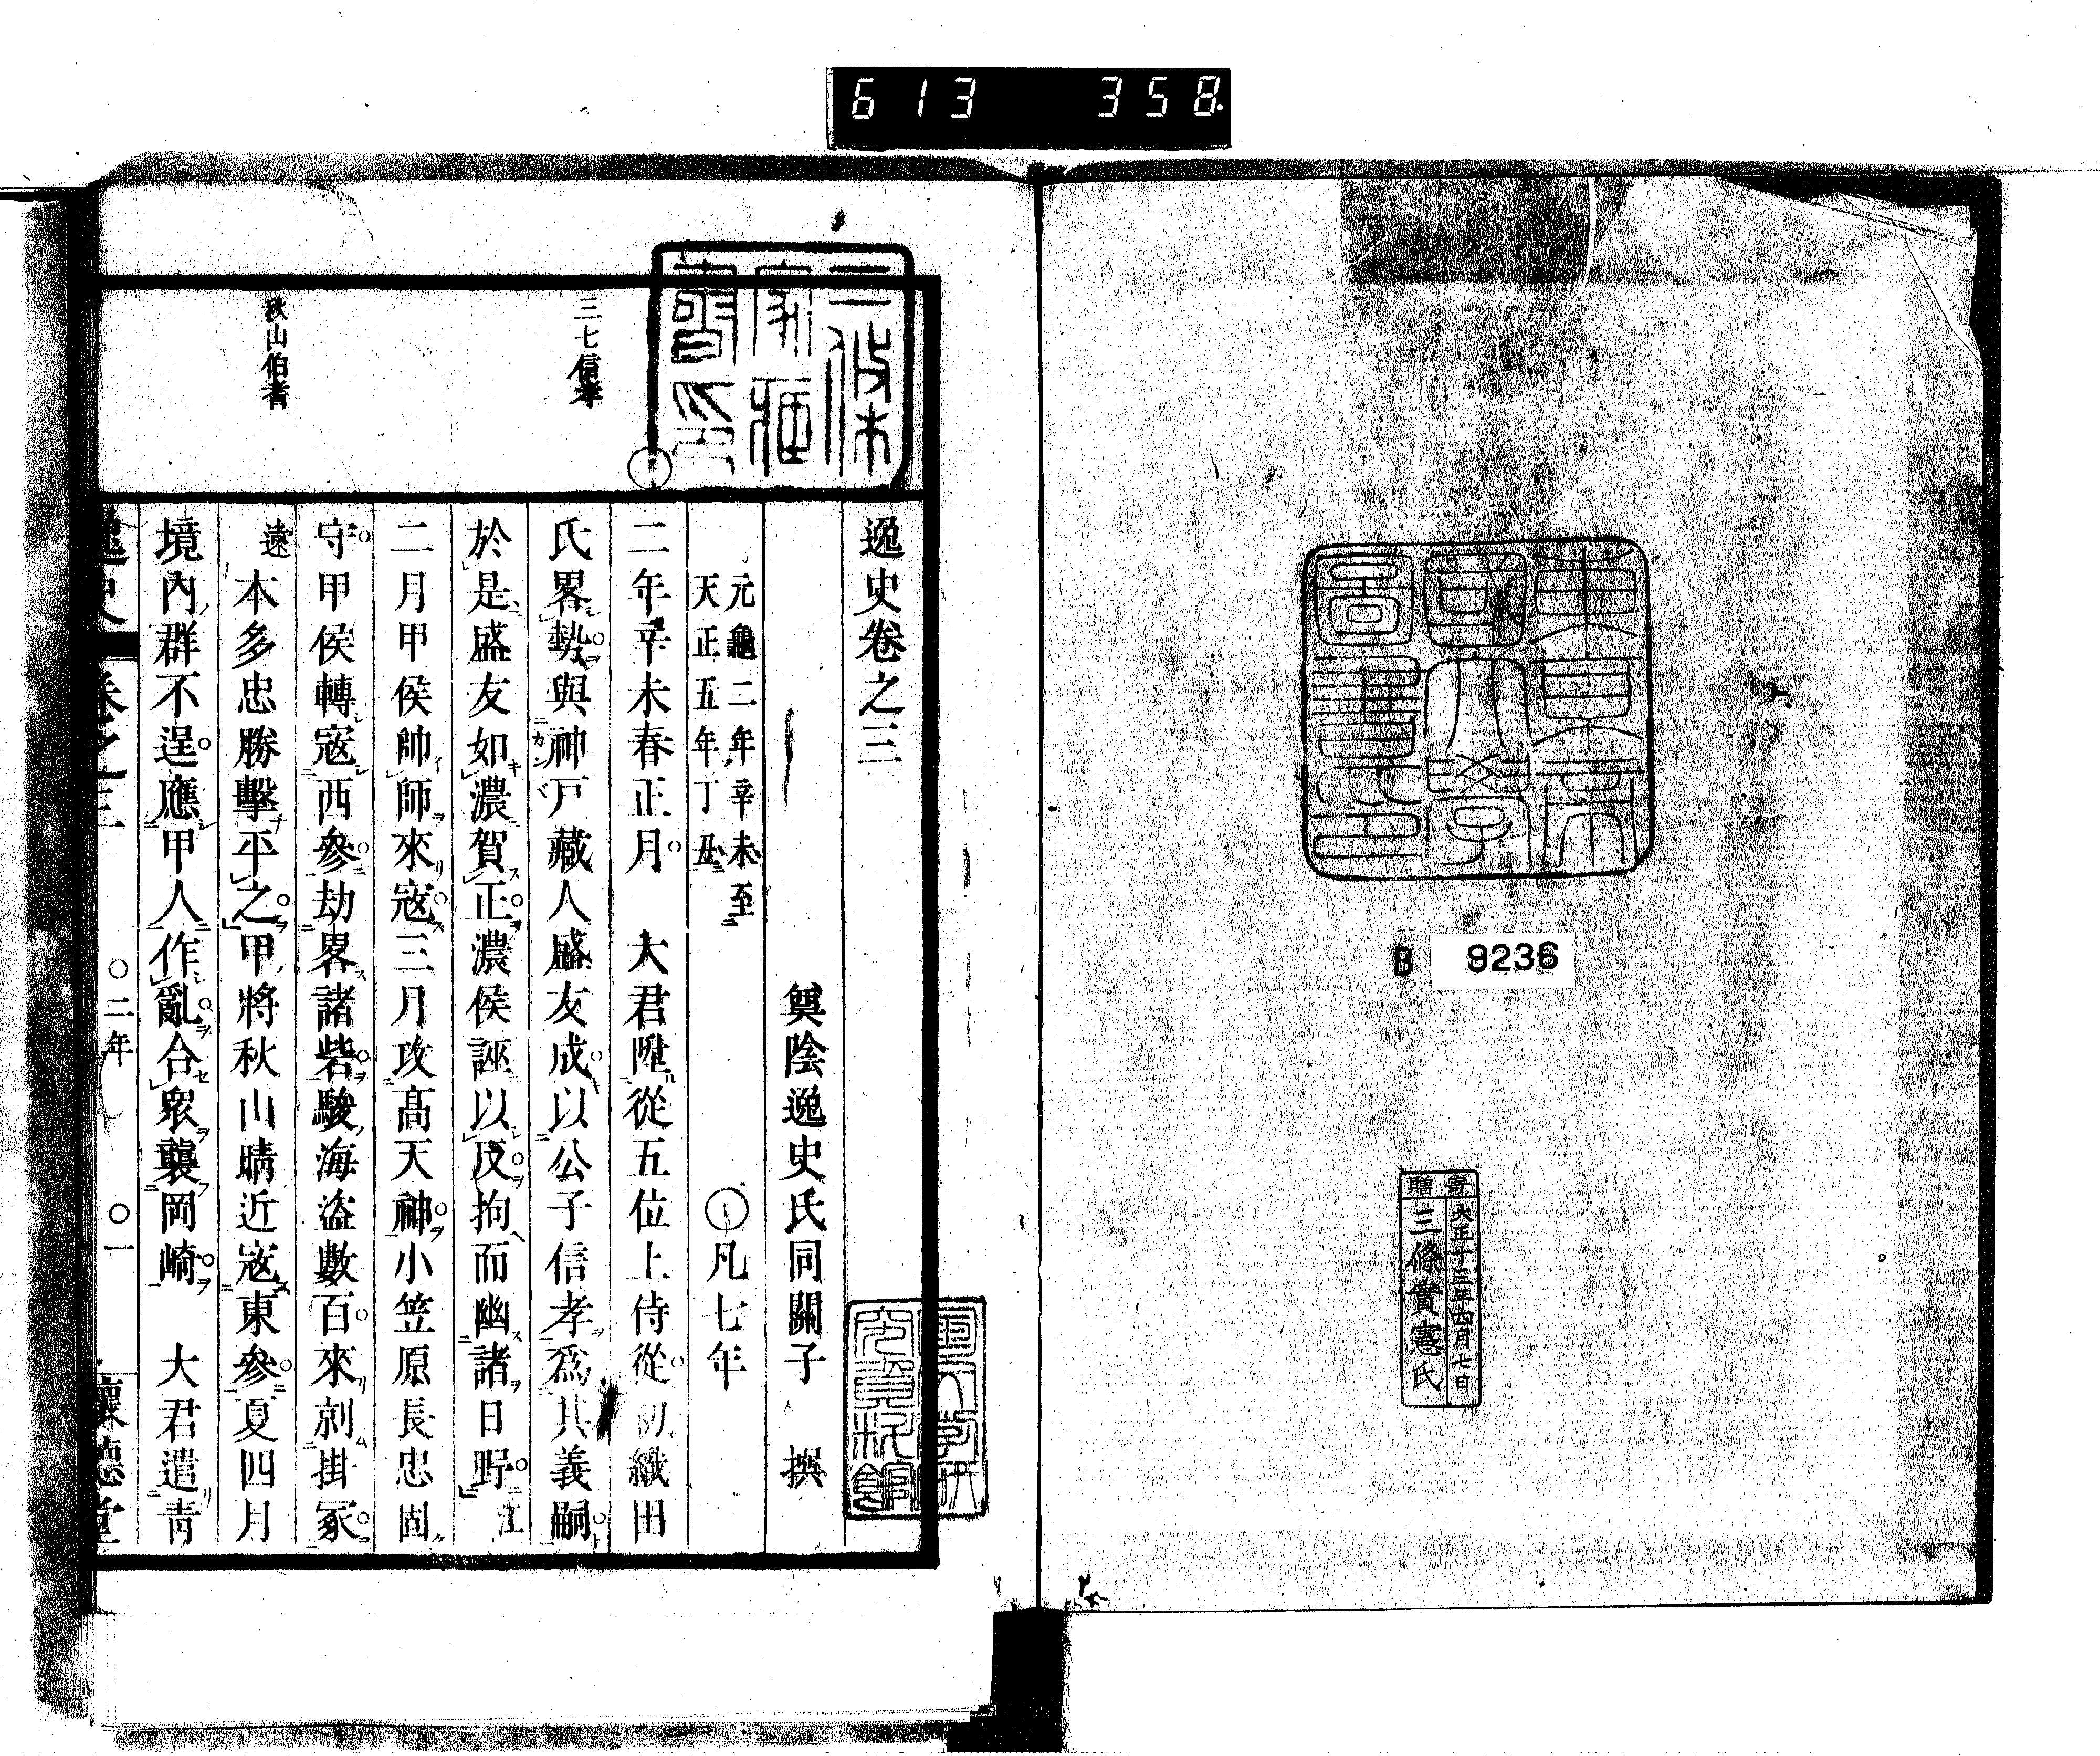 613 358.
東京
帝國大學
圖書印
B 9236
寄贈
大正十三年四月七日
三條實憲氏
三條
家藏
書印
三七信孝
秋山伯耆
逸史卷之三
奠陰逸史氏同關子 撰
元龜二年辛未至
天正五年丁丑
凡七年
二年辛未春正月 大君陞從五位上侍從初織田
氏畧勢與神戸藏人盛友成以公子信孝爲其義嗣
於是盛友如濃賀正濃侯誣以反拘而幽諸日野江
二月甲侯帥師來寇三月攻髙天神小笠原長忠固
守甲侯轉寇西參劫畧諸砦駿海盗數百來剽掛冢
遠本多忠勝擊平之甲將秋山晴近寇東參夏四月
境內群不逞應甲人作亂合衆襲岡崎 大君遣青
逸史 卷之三 〇二年 〇一 懷德堂